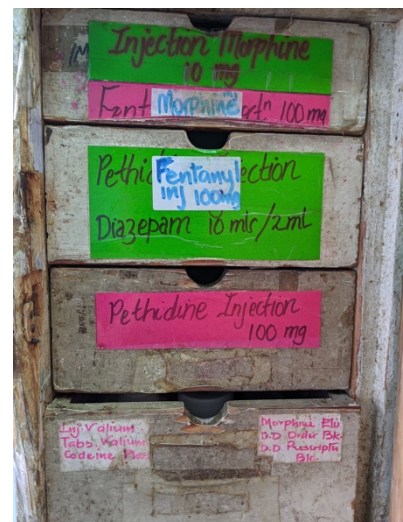 Injection Morphine
10 mg
Fent Morphine ertn 100 mg
Pethi Fentanyl ection
inj 100mg
Diazepam 10 mls/2ml
Pethidine Injection
100 mg
Inj Valium
Tabs. Valium
Codeine Phos
Morphine Eli
D.D Order Bk.
D.D Prescriptn
Bk.